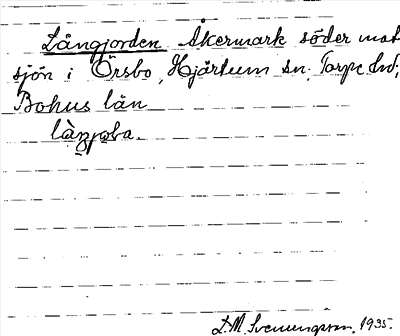 Långjorden Åkermark söder mot
sjön i Örsbo, Hjärtum sn. Torpe hd;
Bohus län

L. M. Svenungsson. 1935.